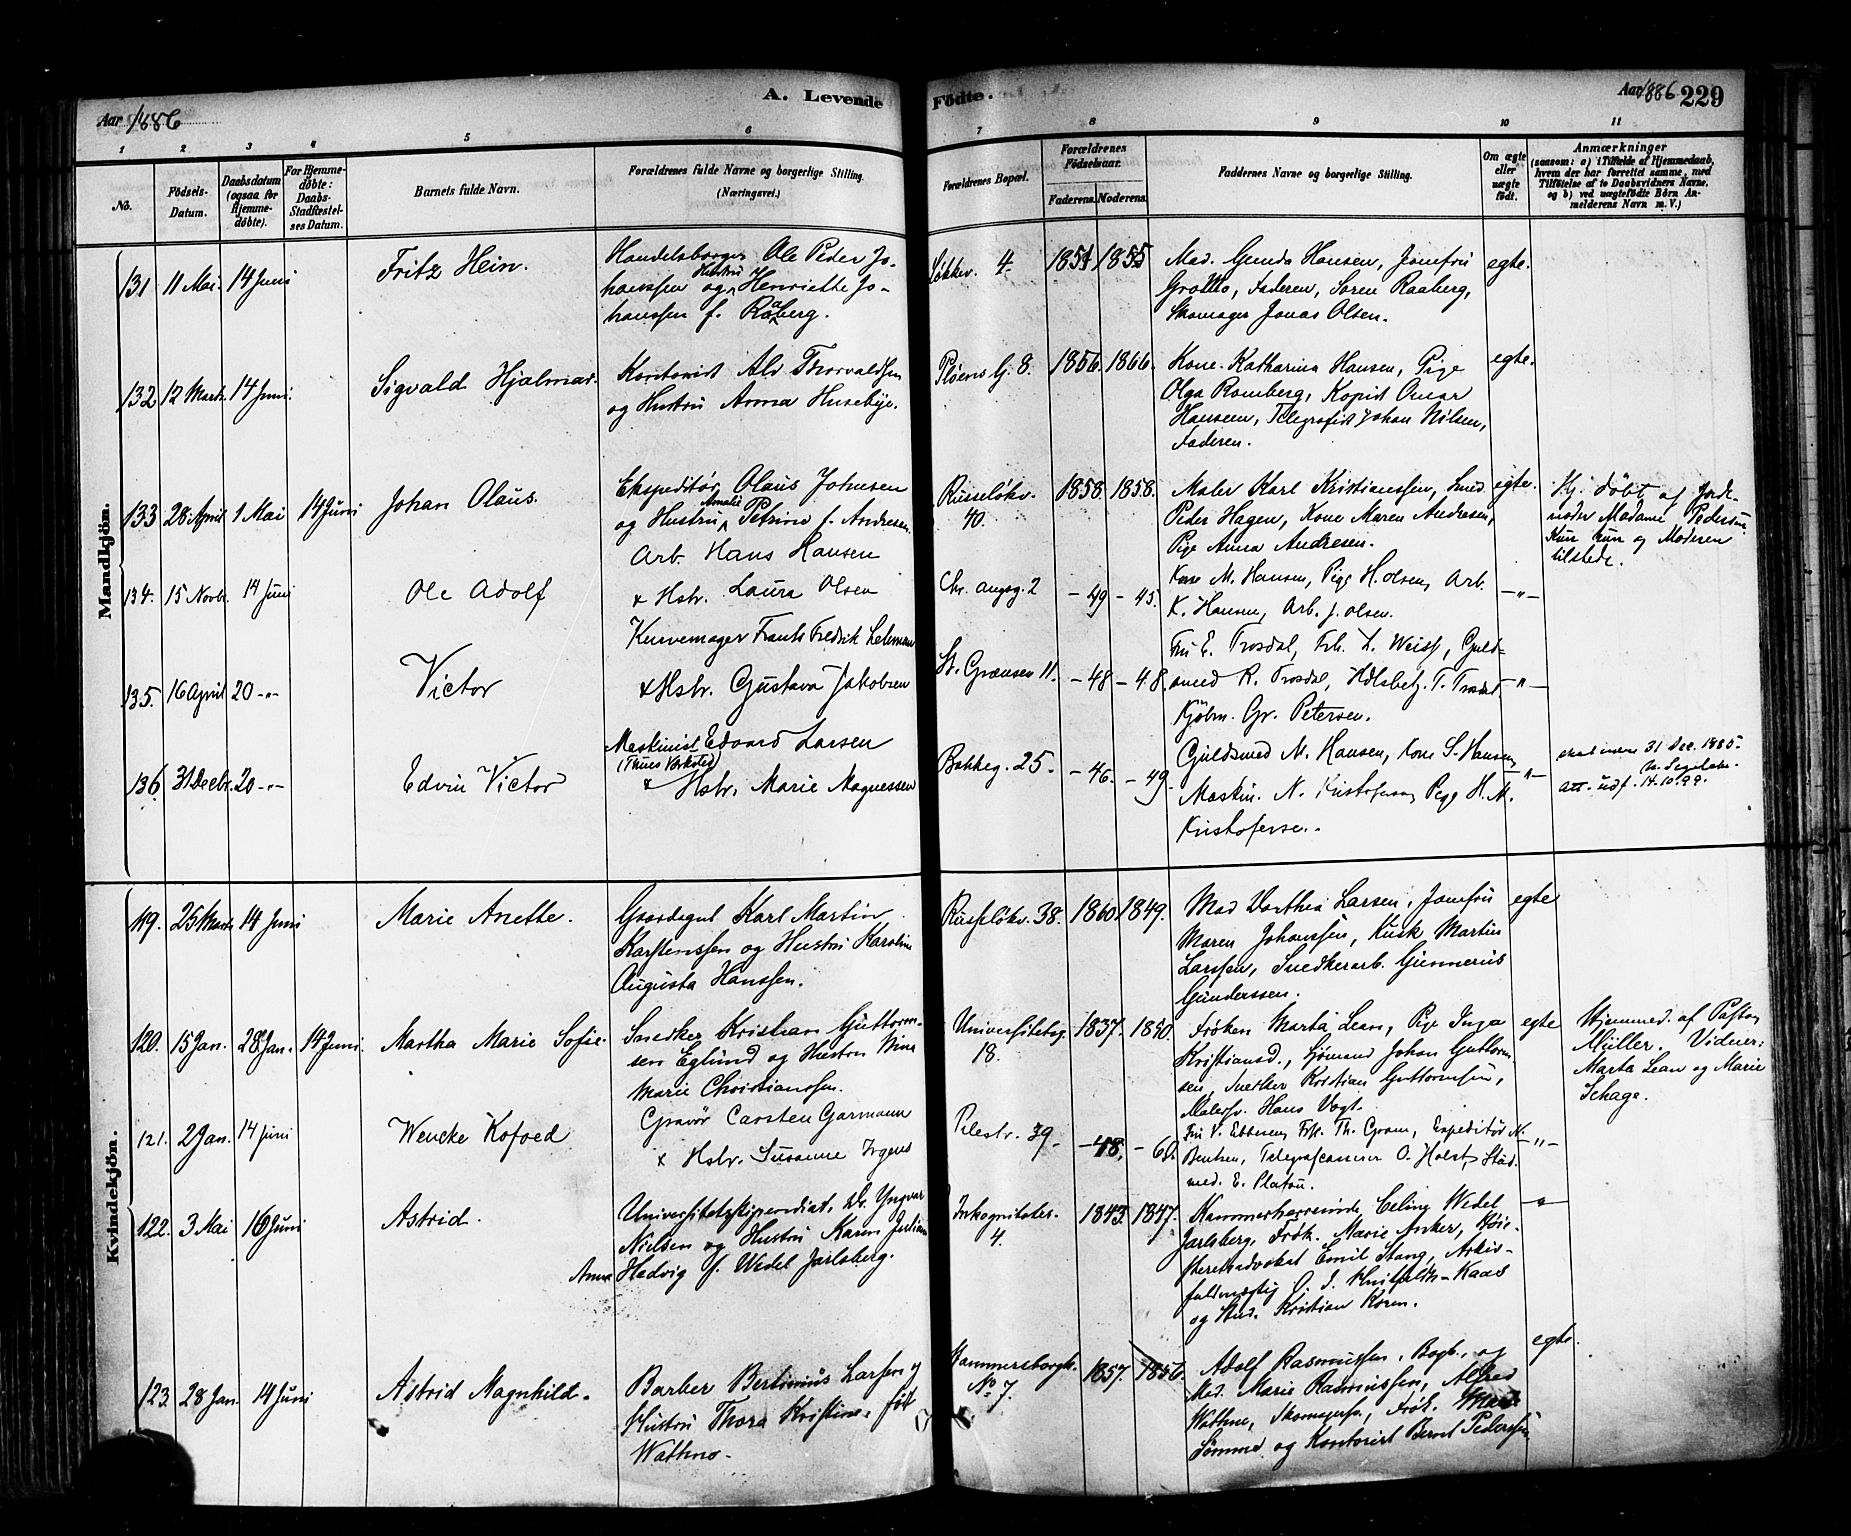 Aar 1886
A. Levende
Fødte.
Aar 1886 229
1 2 3 4 5 6 7 8 9 10 11
No.
Fødsels-Datum.
Daabsdatum (ogsaa for Hjemmedøbte).
For Hjemmedøbte: Daabs-Stadfæstelses Datum.
Barnets fulde Navn.
Forældrenes fulde Navne og borgerlige Stilling.
(Næringsvei.)
Forældrenes Bopæl.
Forældrenes Fødselsaar.
Faderens. Moderens.
Faddernes Navne og borgerlige Stilling.
Om ægte eller uægte født.
Anmærkninger
(saasom: a) i Tilfælde af Hjemmedaab, hvem der har forrettet samme, med Tilføielse af to Daabsvidners Navne, og b) ved uægtefødte Børn Anmelderens Navn m. V.)
Mandkjøn.
131 11 Mai. 14 Juni Fritz Hein.
Handelsborger Ole Peder Jo-
hanssen og Hustru Henriette Jo-
hanssen f. Raaberg.
Løkkev. 4. 1851 1855
Mad. Gunda Hansen, Jomfru
Grotho, Faderen, Søren Raaberg,
Skomager Jonas Olsen.
egte.
132 12 Marts 14 Juni. Sigvald Hjalmar.
Kontorist Alv Thorvaldsen
og Hustru Anna Husebye.
Pløens G. 8. 1856. 1866.
Kone Katharina Hansen, Pige
Olga Romberg, Kopist Omar
Hansen, Telegrafist Johan Nilsen,
Faderen.
egte.
133 28 April 1 Mai 14 Juni Johan Olaus.
Ekspeditør Olaus Johnsen
og Hustru Amalie Petrine f. Andresen
Russeløkv. 40. 1858. 1858.
Maler Karl Kristianssen, Smed
Peder Hagen, Kone Maren Andresen,
Pige Anna Andresen.
egte.
Hj. døbt af Jorde-
moder Madame Pedersen
Kun hun og Moderen
tilstede.
134. 15 Novbr. 14 Juni Ole Adolf
Arb. Hans Hansen
& Hstr. Laura Olsen
Chr. Augsg. 2 – 49 – 45.
Kone M. Hansen, Pige H. Olsen, Arb.
K. Hansen, Arb. J. Olsen.
–"–
135. 16 April 20 –"– Victor
Kurvemager Frants Fredrik Lehmann
& Hstr. Gustava Jakobsen
St. Grænsen 11. – 48 – 48.
Fru E. Trosdal, Frk. L. Weiss, Guld-
smed R. Trosdal, Hdlsbetj. T. Trosdal
Kjøbm. Gr. Petersen.
–"–
136. 31 Decbr. 20 –"– Edvin Victor
Maskinist Edvard Larsen
(Thunes Værksted)
& Hstr. Marie Magnessen
Bakkeg. 25. – 46. – 49.
Guldsmed N. Hansen, Kone S. Hansen,
Maskin. N. Kristofersen, Pige H. M.
Kristofersen.
–"–
skal være 31 Dec. 1885.
Att. udf. 14.10.99.
Kvindekjøn.
119. 25 Marts 14 Juni Marie Anette.
Gaardsgut Karl Martin
Karstenssen og Hustru Karoline
Augusta Hanssen.
Russeløkv. 38. 1860. 1849.
Mad Dorthea Larsen, Jomfru
Maren Johanssen, Kusk Martin
Larssen, Snedkerarb. Gunnerius
Gunderssen.
egte
120. 15 Jan. 28 Jan. 14 Juni. Martha Marie Sofie.
Snedker Kristian Guttorm-
sen Eglund og Hustru Nina
Marie Christianssen.
Universitetsg. 18. 1837. 1850.
Frøken Marta Lean, Pige Inga
Kristiansd., Sjømand Johan Guttorm-
sen, Snedker Kristian Guttormsen,
Malersv. Hans Vogt.
egte
Hjemmed. af Pastor
Müller. Vidner:
Marta Lean og Marie
Schage.
121. 2 Jan. 14 Juni Wencke Kofoed
Gravør Carsten Garmann
& Hstr. Susanne Irgens
Pilestr. 39 – 48. – 60.
Fru V. Ebbesen, Frk. Th. Gram, Expeditør N.
Bentzen, Telegrafcasserer O. Holst, Stud.
med. E. Platou.
–"–
122. 3 Mai 16 Juni Astrid.
Universitetsstipendiat, Dr. Yngvar
Nielsen og Hustru Karen Juliane
Anna Hedvig f. Wedel Jarlsberg.
Inkognitoter. 4. 1843. 1847.
Kammerherreinde Celina Wedel
Jarlsberg, Frøk. Marie Anker, Høie-
steretsadvokat Emil Stang, Arkiv-
fuldmægtig C. J. Huitfeldt-Kaas
og Stud. Kristian Koren.
–"–
123. 28 Jan. 14 Juni Astrid Magnhild.
Barber Bertinius Larsen og
Hustru Thora Kristine, født
Wathne.
Hammersborgt. No 7. 1857. 1856.
Adolf Rasmussen, Bogb., og
Mad. Marie Rasmussen, Alfred
Wathne, Skomagersv., Frøk.
Sømme og Kontorist Bernt Pederssen
egte.